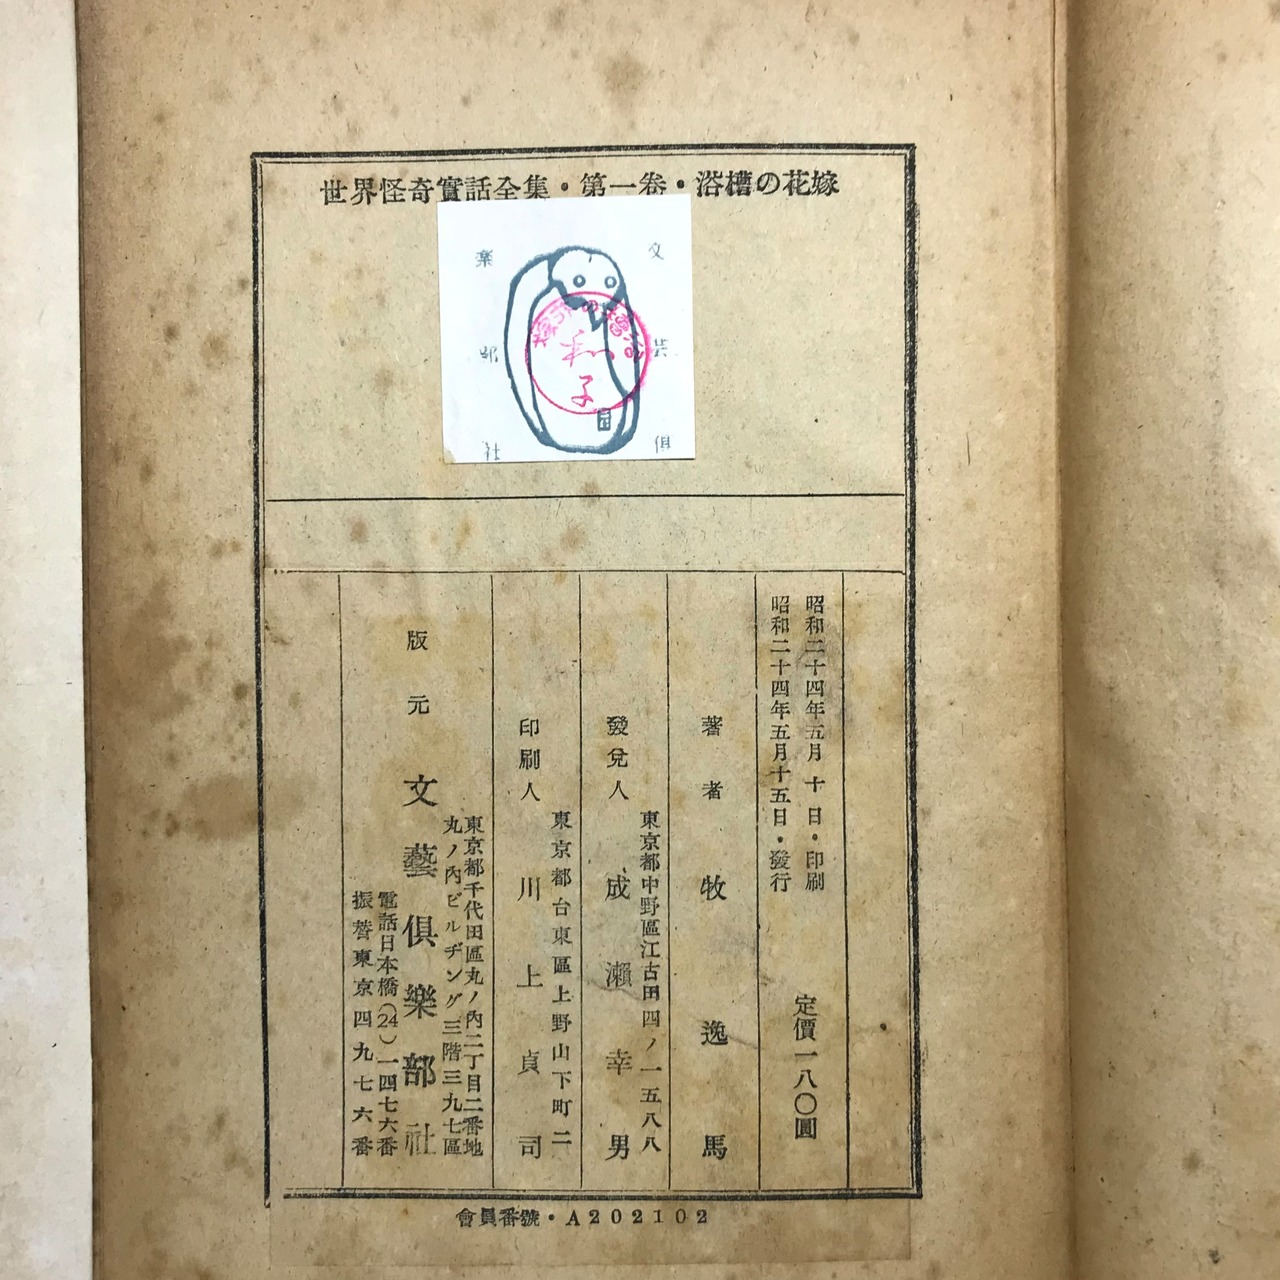 世界怪奇實話全集・第一卷・浴槽の花嫁
文
芸
俱
楽
部
社
浴槽の花嫁
和子
昭和二十四年五月十日・印刷
昭和二十四年五月十五日・發行
定價一八〇圓
著者 牧逸馬
東京都中野區江古田四ノ一五八八
發兌人 成瀨幸男
東京都台東區上野山下町二
印刷人 川上貞司
東京都千代田區丸ノ內二丁目二番地
丸ノ內ビルヂング三階三九七區
版元 文藝俱樂部社
電話日本橋(24)一四七六番
振替東京四九七六番
會員番號・A202102